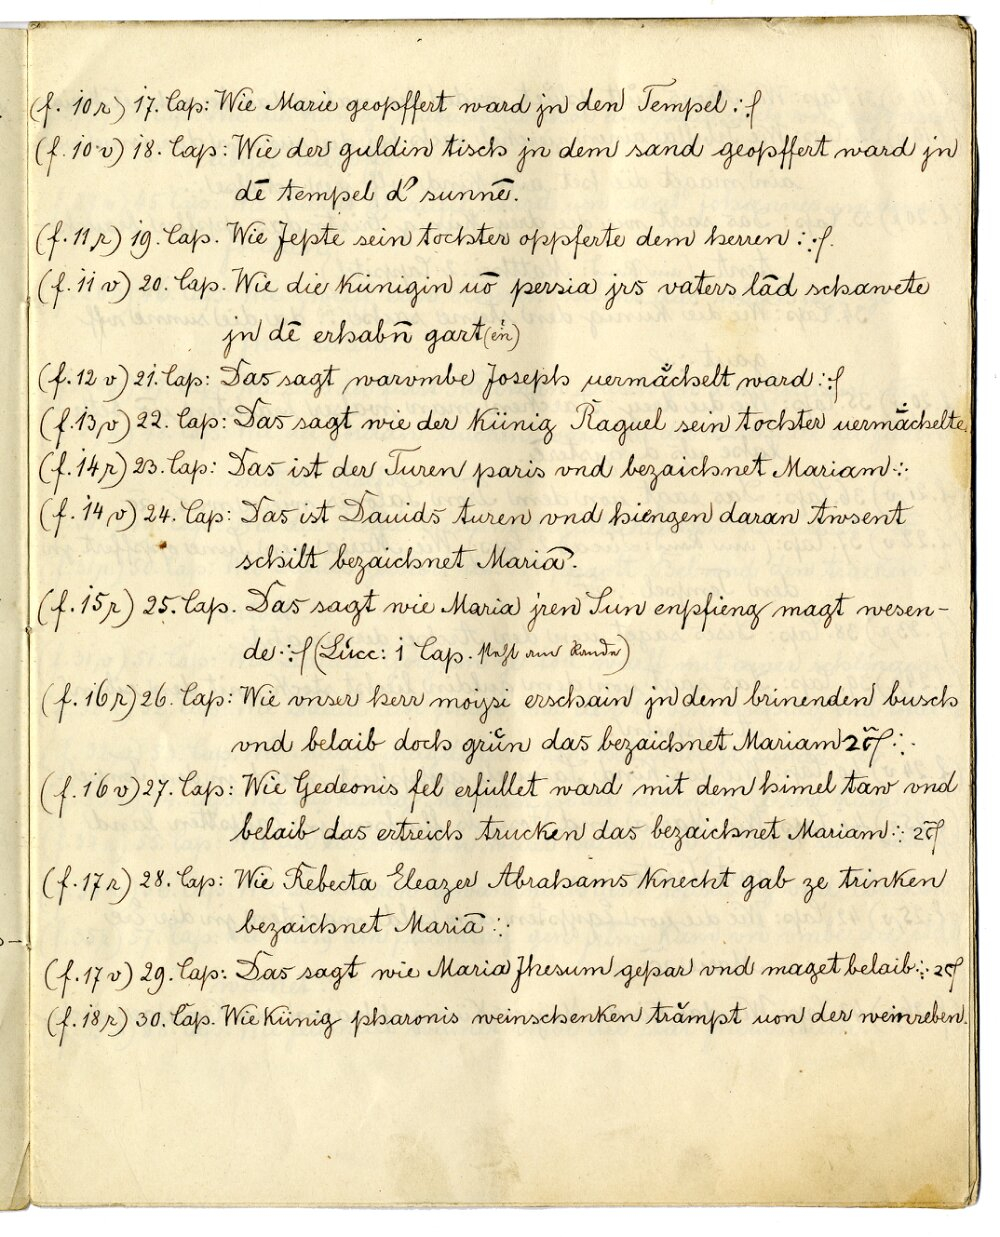 (f. 10r) 17. Cap: Wie Marie geopffert ward jn den Tempel :∫
(f. 10v) 18. Cap: Wie der guldin tisch jn dem sand geopffert ward jn
dē tempel d᾽ sunnē.
(f. 11r) 19. Cap. Wie Jepte sein tochter oppferte dem herren :∫.
(f. 11v) 20. Cap. Wie die künigin uō persia jrs vaters lād schawete
jn dē erhabn̄ gart(en)
(f. 12v) 21. Cap: Das sagt warvmbe Joseph uermächelt ward :∫
(f. 13v) 22. Cap: Das sagt wie der künig Raguel sein tochter uermächelte.
(f. 14r) 23. Cap: Das ist der Turen paris vnd bezaichnet Mariam :·
(f. 14v) 24. Cap: Das ist Dauids turen vnd hiengen daran twsent
schilt bezaichnet Mariā.
(f. 15r) 25. Cap. Das sagt wie Maria jren Sun enpfieng magt wesen-
de :∫ (Lucc: 1 Cap. steht am Rande)
(f. 16r) 26. Cap: Wie vnser herr moysi erschain jn dem brinenden busch
vnd belaib doch grůn das bezaichnet Mariam 2c̄∫ :·
(f. 16v) 27. Cap: Wie Gedeonis fel erfullet ward mit dem himel taw vnd
belaib das ertreich trucken das bezaichnet Mariam :· 2c̄∫
(f. 17r) 28. Cap: Wie Rebecta Eleazer Abrahams Knecht gab ze trinken
bezaichnet Mariā :·
(f. 17v) 29. Cap: Das sagt wie Maria Jhesum gepar vnd maget belaib :· 2c∫
(f. 18r) 30. Cap. Wie Künig pharonis weinschenken trämpt uon der weinreben.